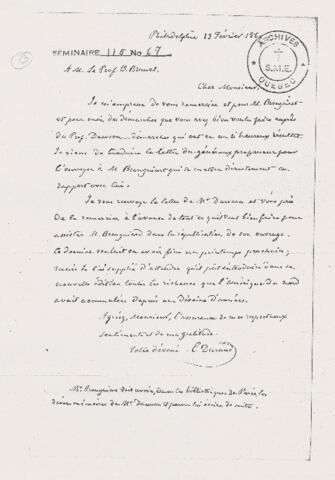 Philadelphie 13 Février 186
SÉMINAIRE 115 No 67
ARCHIVES
S.M.E.
QUÉBEC
A M. Le Prof. O. Brunet.
Cher Monsieur,
Je m'empresse de vous remercier et pour M. Brongniart
et pour moi, des démarches que vous avez bien voulu faire auprès
du Prof. Dawson, démarches qui ont eu un si heureux résultat.
Je viens de traduire la lettre du généreux professeur pour
l'envoyer à M. Brongniart qui se mettra directement en
rapport avec lui.
Je vous renvoye la lettre de Mr Dawson et vous prie
de le remercier à l'avance de tout ce qu'il veut bien faire pour
assister M. Brongniart dans la républication de son ouvrage.
Ce dernier voulait en avoir fini au printemps prochain;
je l'ai supplié d'attendre qu'il put introduire dans sa
nouvelle édition toutes les richesses que l'Amérique du Nord
avait accumulées depuis une dizaine d'années.
Agréez, Monsieur, l'assurance de mes respectueux
sentiments et de ma gratitude.
Votre dévoué E. Durand
Mr Brongniart doit avoir, dans les bibliothèques de Paris, les
divers mémoires de Mr Dawson et pourra lui écrire de suite.